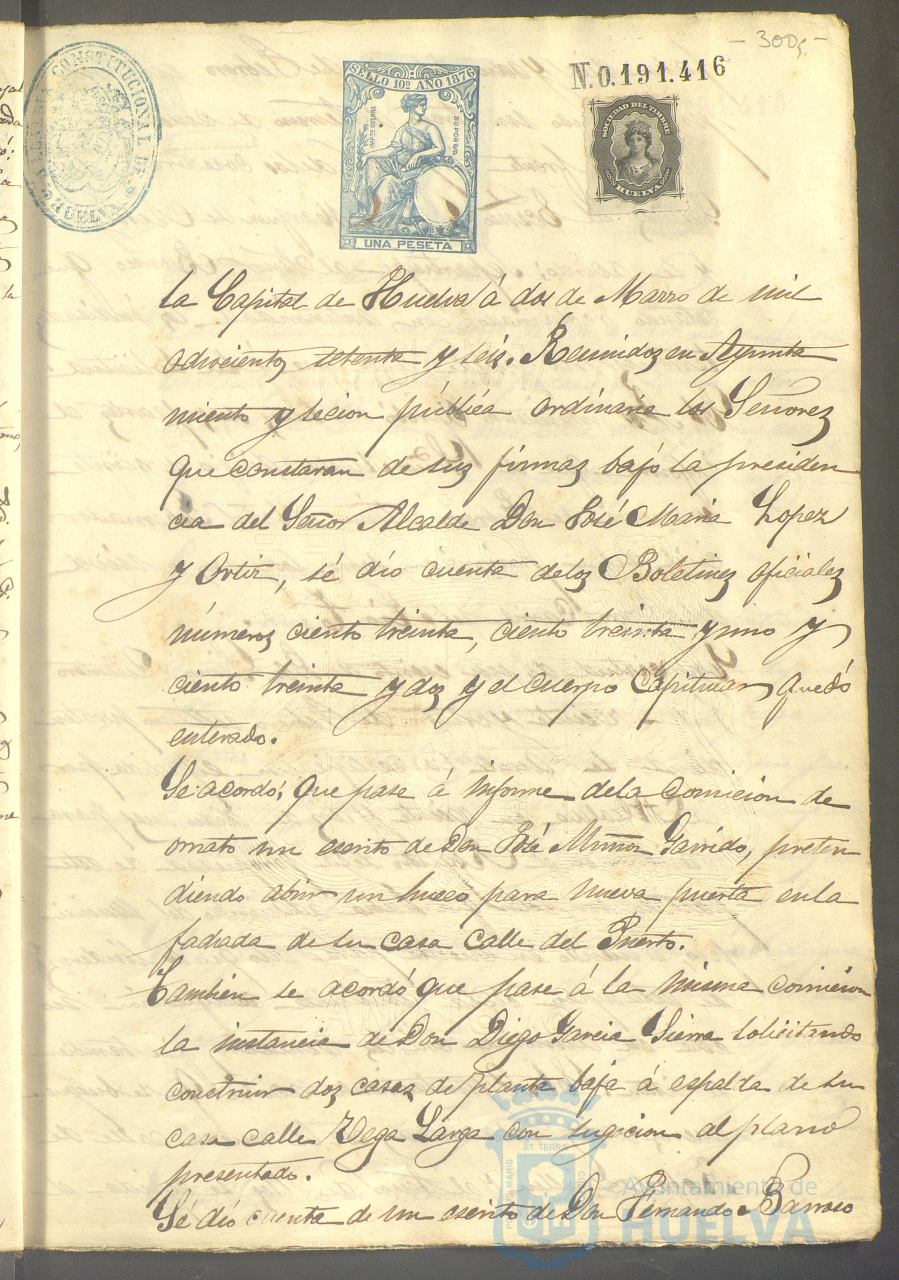 - 300,-
ALCALDIA CONSTITUCIONAL DE
HUELVA
SELLO 10º AÑO 1876
UNA PESETA
N.0.191.416
SOCIEDAD DEL TIMBRE
HUELVA
la Capital de Huelva á dos de Marzo de mil
ochocientos setenta y seis. Reunidos en Ayunta
miento y secion pública ordinaria los Señores
que constaran de sus firmas bajo la presiden
cia del Señor Alcalde Don José Maria Lopez
y Ortiz, sé dio cuenta delos Boletines oficiales
números ciento treinta, ciento treinta y uno y
ciento treinta y dos y el cuerpo Capitular quedó
enterado.
Se acordó; que pase á informe dela comicion de
ornato un escrito de Don José Muñoz Garrido, preten
diendo abrir un hueco para nueva puerta en la
fachada de su casa calle del Puerto.
Tambien se acordó que pase á la misma comicion
la instancia de Don Diego Garcia Sierra solicitando
construir dos casas de planta baja á espalda de su
casa calle Vega Larga con sugicion al plano
presentado.
Sé dio cuenta de un escrito de Don Fernando Barroso
Ayuntamiento de
HUELVA